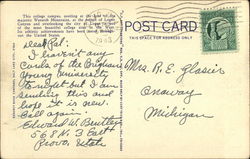 This college campus
majestic Wasatch Mountains, at the mouth of Logan
Canyon and overlooking the city of Logan
the most beautiful college
Its athletic achievements have been made
out the United States.
POST CARD
THIS SPACE FOR ADDRESS ONLY
Dear Pal:
I haven't any
Cards of the Brigham
Young University
tonight but I am
sending this and
hope it is new.
Call again.
Edward W.
568 N. 3 East
Provo, Utah
Mrs. R. E. Glasier
Onaway
Michigan